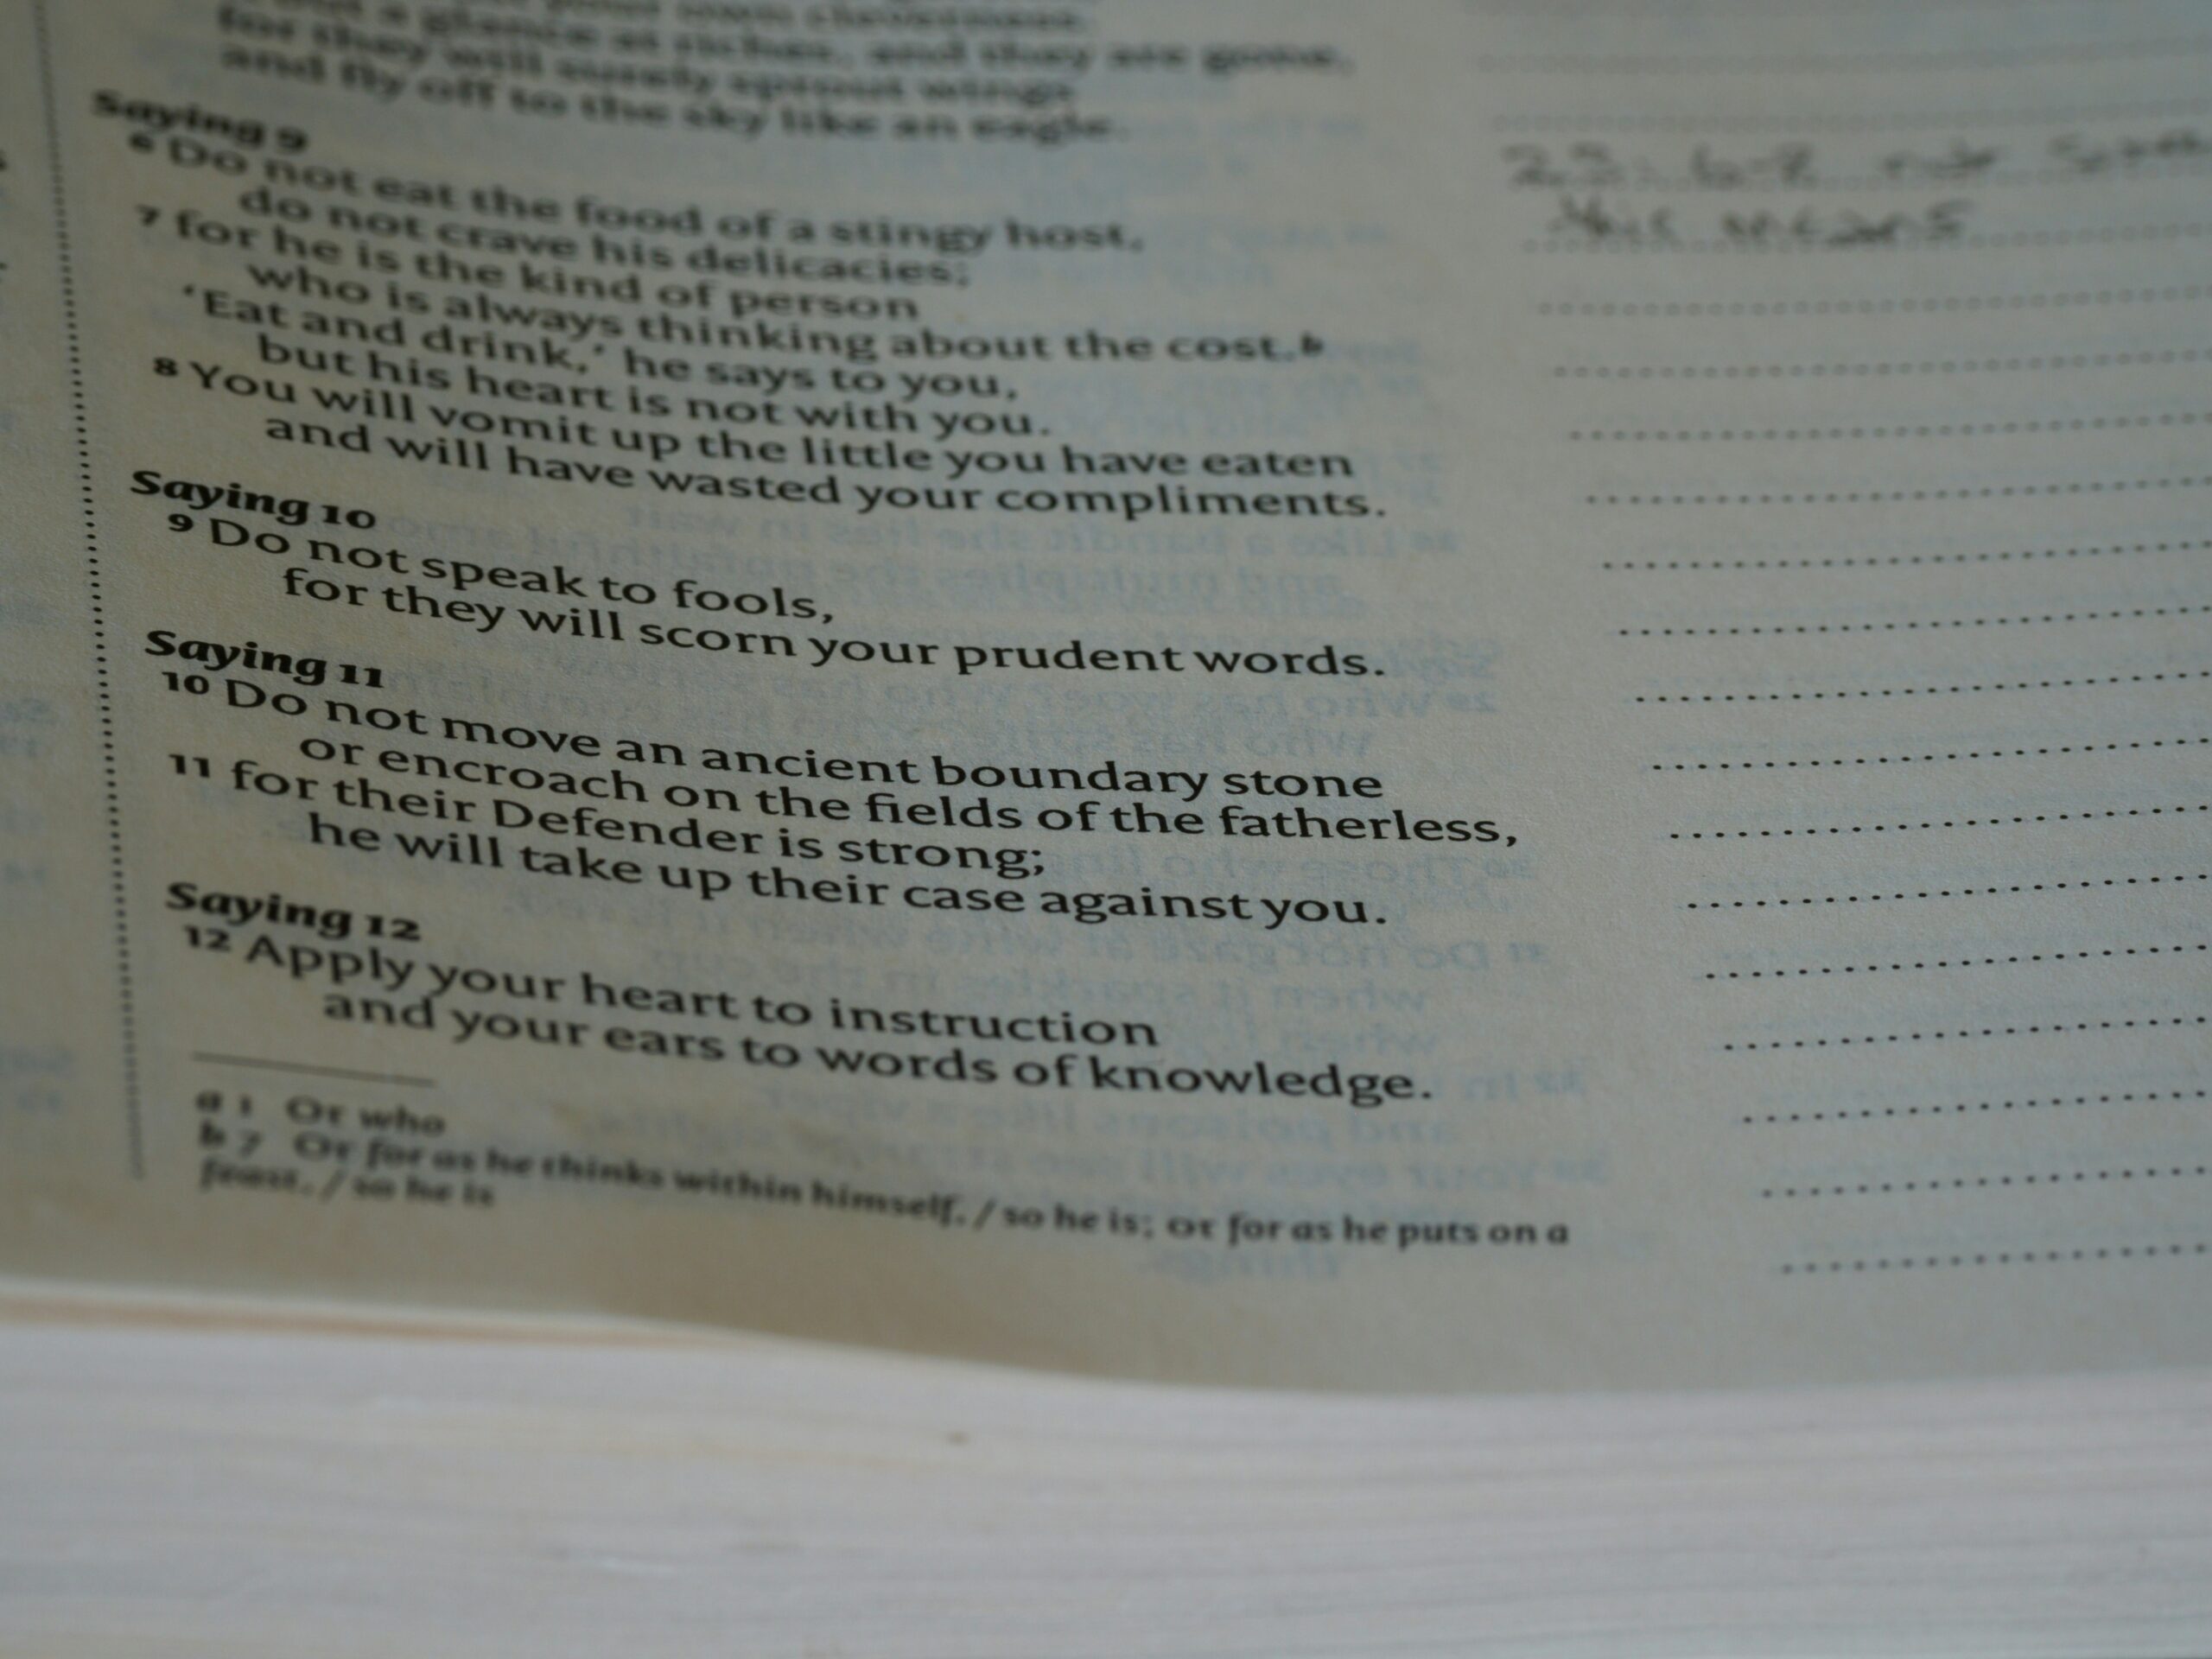 own cleverness.
glance at riches, and they are gone,
for they will surely sprout wings
and fly off to the sky like an eagle.
Saying 9
6 Do not eat the food of a stingy host,
do not crave his delicacies;
7 for he is the kind of person
who is always thinking about the cost.b
‘Eat and drink,’ he says to you,
but his heart is not with you.
8 You will vomit up the little you have eaten
and will have wasted your compliments.
Saying 10
9 Do not speak to fools,
for they will scorn your prudent words.
Saying 11
10 Do not move an ancient boundary stone
or encroach on the fields of the fatherless,
11 for their Defender is strong;
he will take up their case against you.
Saying 12
12 Apply your heart to instruction
and your ears to words of knowledge.
a 1 Or who
b 7 Or for as he thinks within himself, / so he is; or for as he puts on a
feast, / so he is
23: 6-8 not
this means